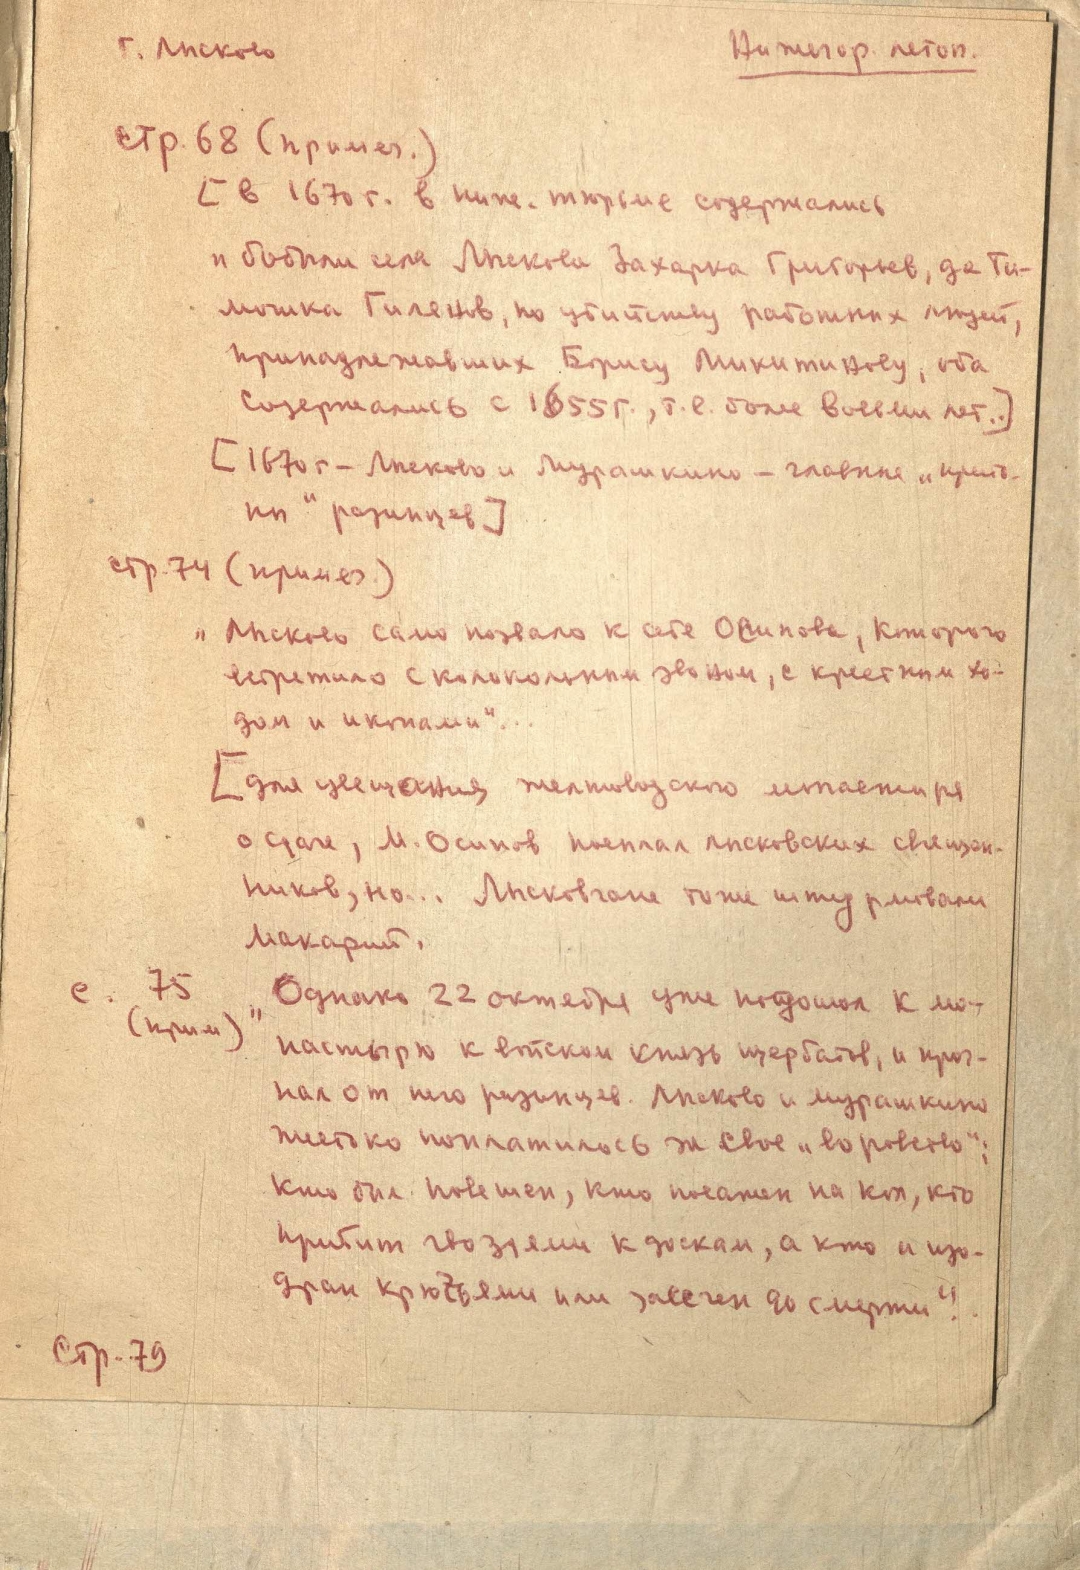 г. Лысково
Нижегор. летоп.
стр. 68 (примеч.)
[В 1670 г. в ниж. тюрьме содержались
и бобыли села Лыскова Захарка Григорьев, да Ти-
мошка Гиленов, по убийству работных людей,
принадлежавших Борису Микитинову, оба
содержались с 1655 г., т.е. более восьми лет..]
[1670 г – Лысково и Мурашкино – главные „прито-
ны" разинцев]
стр. 74 (примеч.)
„Лысково само позвало к себе Осипова, которого
встретило с колокольным звоном, с крестным хо-
дом и иконами"...
[Для увещания Желтоводского монастыря
о сдаче, М. Осипов посылал лысковских священ-
ников, но... Лысковчане тоже штурмовали
Макарий.
с. 75
(прим)
„Однако 22 октября уже подошол к мо-
настырю к войском князь Щербатов, и прог-
нал от него разинцев. Лысково и Мурашкино
жестоко поплатилось за свое „воровство";
кто был повешен, кто посажен на кол, кто
прибит гвоздями к доскам, а кто и изо-
дран крючьями или засечен до смерти"!
Стр. 79